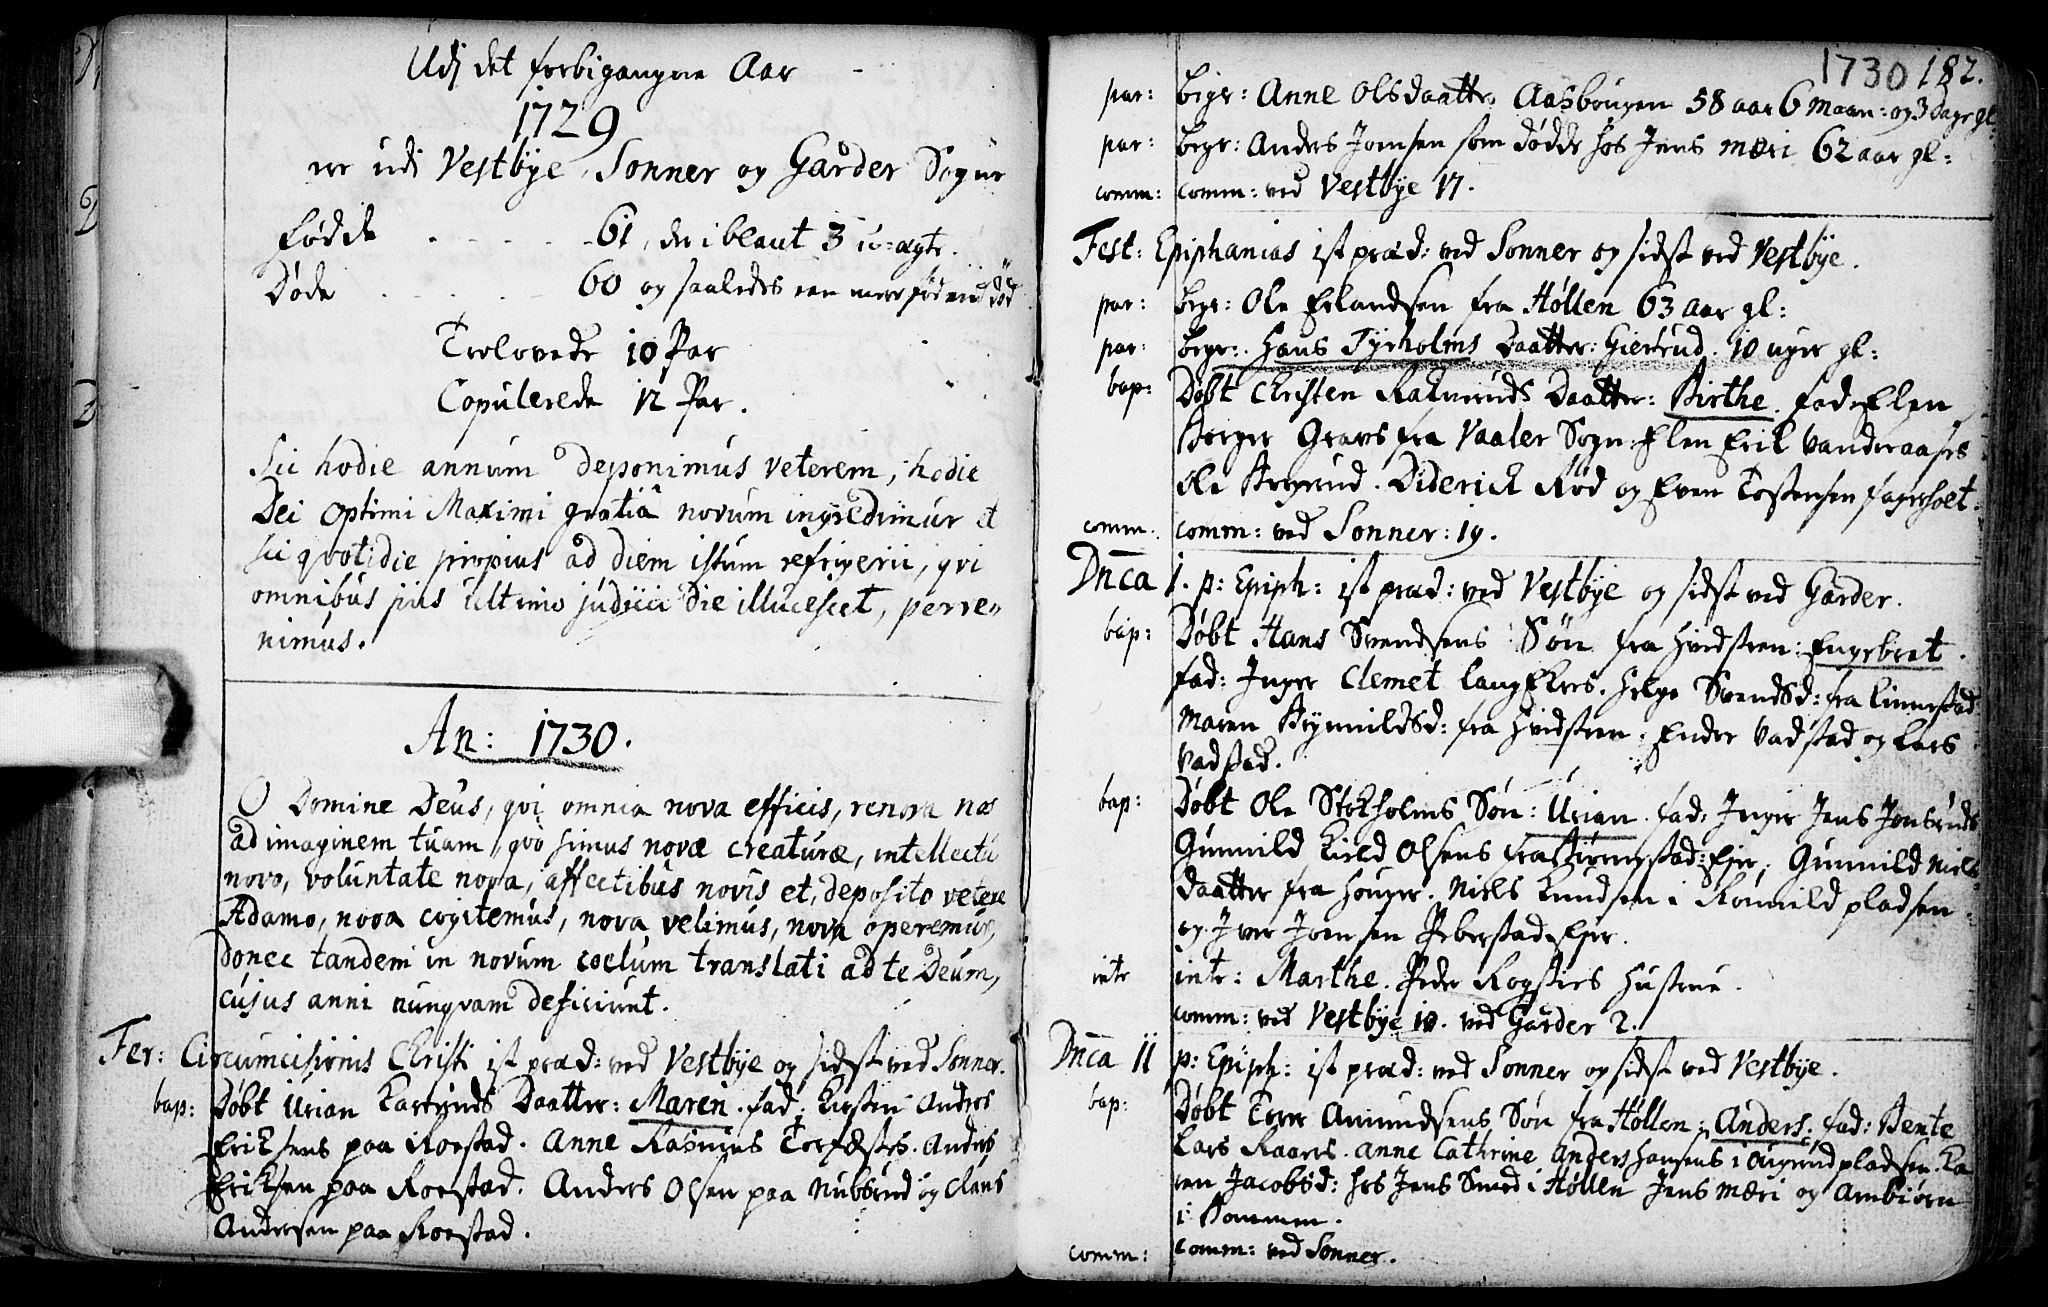 Udj det forbigangne Aar
1729
ere udi Vestbÿe, Sonner og Garder Sogne
fødde 61, der iblant 3 u-ægte.
Døde 60 og saaledes een meer fød end död
Trolovede 10 Par
Copulerede 12 Par.
Sic hodie annum deponimus veterem, hodie
Dei Optimi Maximi gratiâ novum ingredimur et
sic qvotidie propius ad diem istum refrigerii, qvi
omnibus piis ultimo judicii die illucescet, perve-
nimus.
An: 1730.
O Domine Deus, qvi omnia nova efficis, renova nos
ad imaginem tuam, qvò simus novæ creaturæ, intellectu
novo, voluntate nova, affectibus novis et, deposito vetere
Adamo, nova cogitemus, nova velimus, nova operemur,
donec tandem in novum coelum translati ad te Deum,
cujus anni nunqvam deficiunt.
Fer: Circumcisionis Christi ist præd: ved Vestbÿe og sidst ved Sonner.
bap: Døbt Urian Daatter: Maren. fad: Kirsten Anders
Eriksens paa Roestad. Anne Rasmus . Anders
Eriksen paa Roestad. Anders Olsen paa Nubbrud og Claus
Andersen paa Roestad.
1730 182.
par: begr: Anne Olsdaatter Aasbougen 58 aar 6 maan: og 3 dage gl:
par: begr: Anders Joensen som døde hos Jens Mæri 62 aar gl:
comm: comm: ved Vestbÿe 17.
Fest: Epiphanias ist præd: ved Sonner og sidst ved Vestbÿe.
par: begr: Ole Erlandsen fra Høllen 63 aar gl:
par: begr: Hans Tyrholms Daatter: Giertrud. 10 uger gl:
bap: Døbt Christen Daatter: Birthe. fad: Elen
Borger Gravs fra Vaaler Sogn. Elen Erik
Ole . Diderick Rød og Even Fagerholt.
comm: comm: ved Sonner: 19.
Dnca 1. p: Epiph: ist præd: ved Vestbÿe og sidst ved Garder.
bap: Døbt Hans Svendsens Søn fra Hvidsteen: Engebret.
fad: Inger Clemet . Helge Svendsd: fra
Maren : fra Hvidsteen. Ender Vadstad og Lars
Vadstad.
bap: Døbt Ole Stokholms Søn: Urian. fad: Inger Jens Jonsruds
Gunnild Kield Olsens fra Eier, Gunnild Niels
daatter fra Houger. Niels Knudsen i pladsen
og Iver Joensen Eier.
intr intr: Marthe. Peder Hustrue.
comm: ved Vestbÿe 10. ved Garder 2.
Dnca II p: Epiph: ist præd: ved Sonner og sidst ved Vestbÿe.
bap: Døbt Tore Amundsens Søn fra Høllen: Anders. fad: Bente
Lars . Anne Cathrine Anders Hansens i pladsen. Ka
ren Jacobsd: hos Jens Smed i Høllen Jens Mæri og Ambiørn
i
comm: comm: ved Sonner.